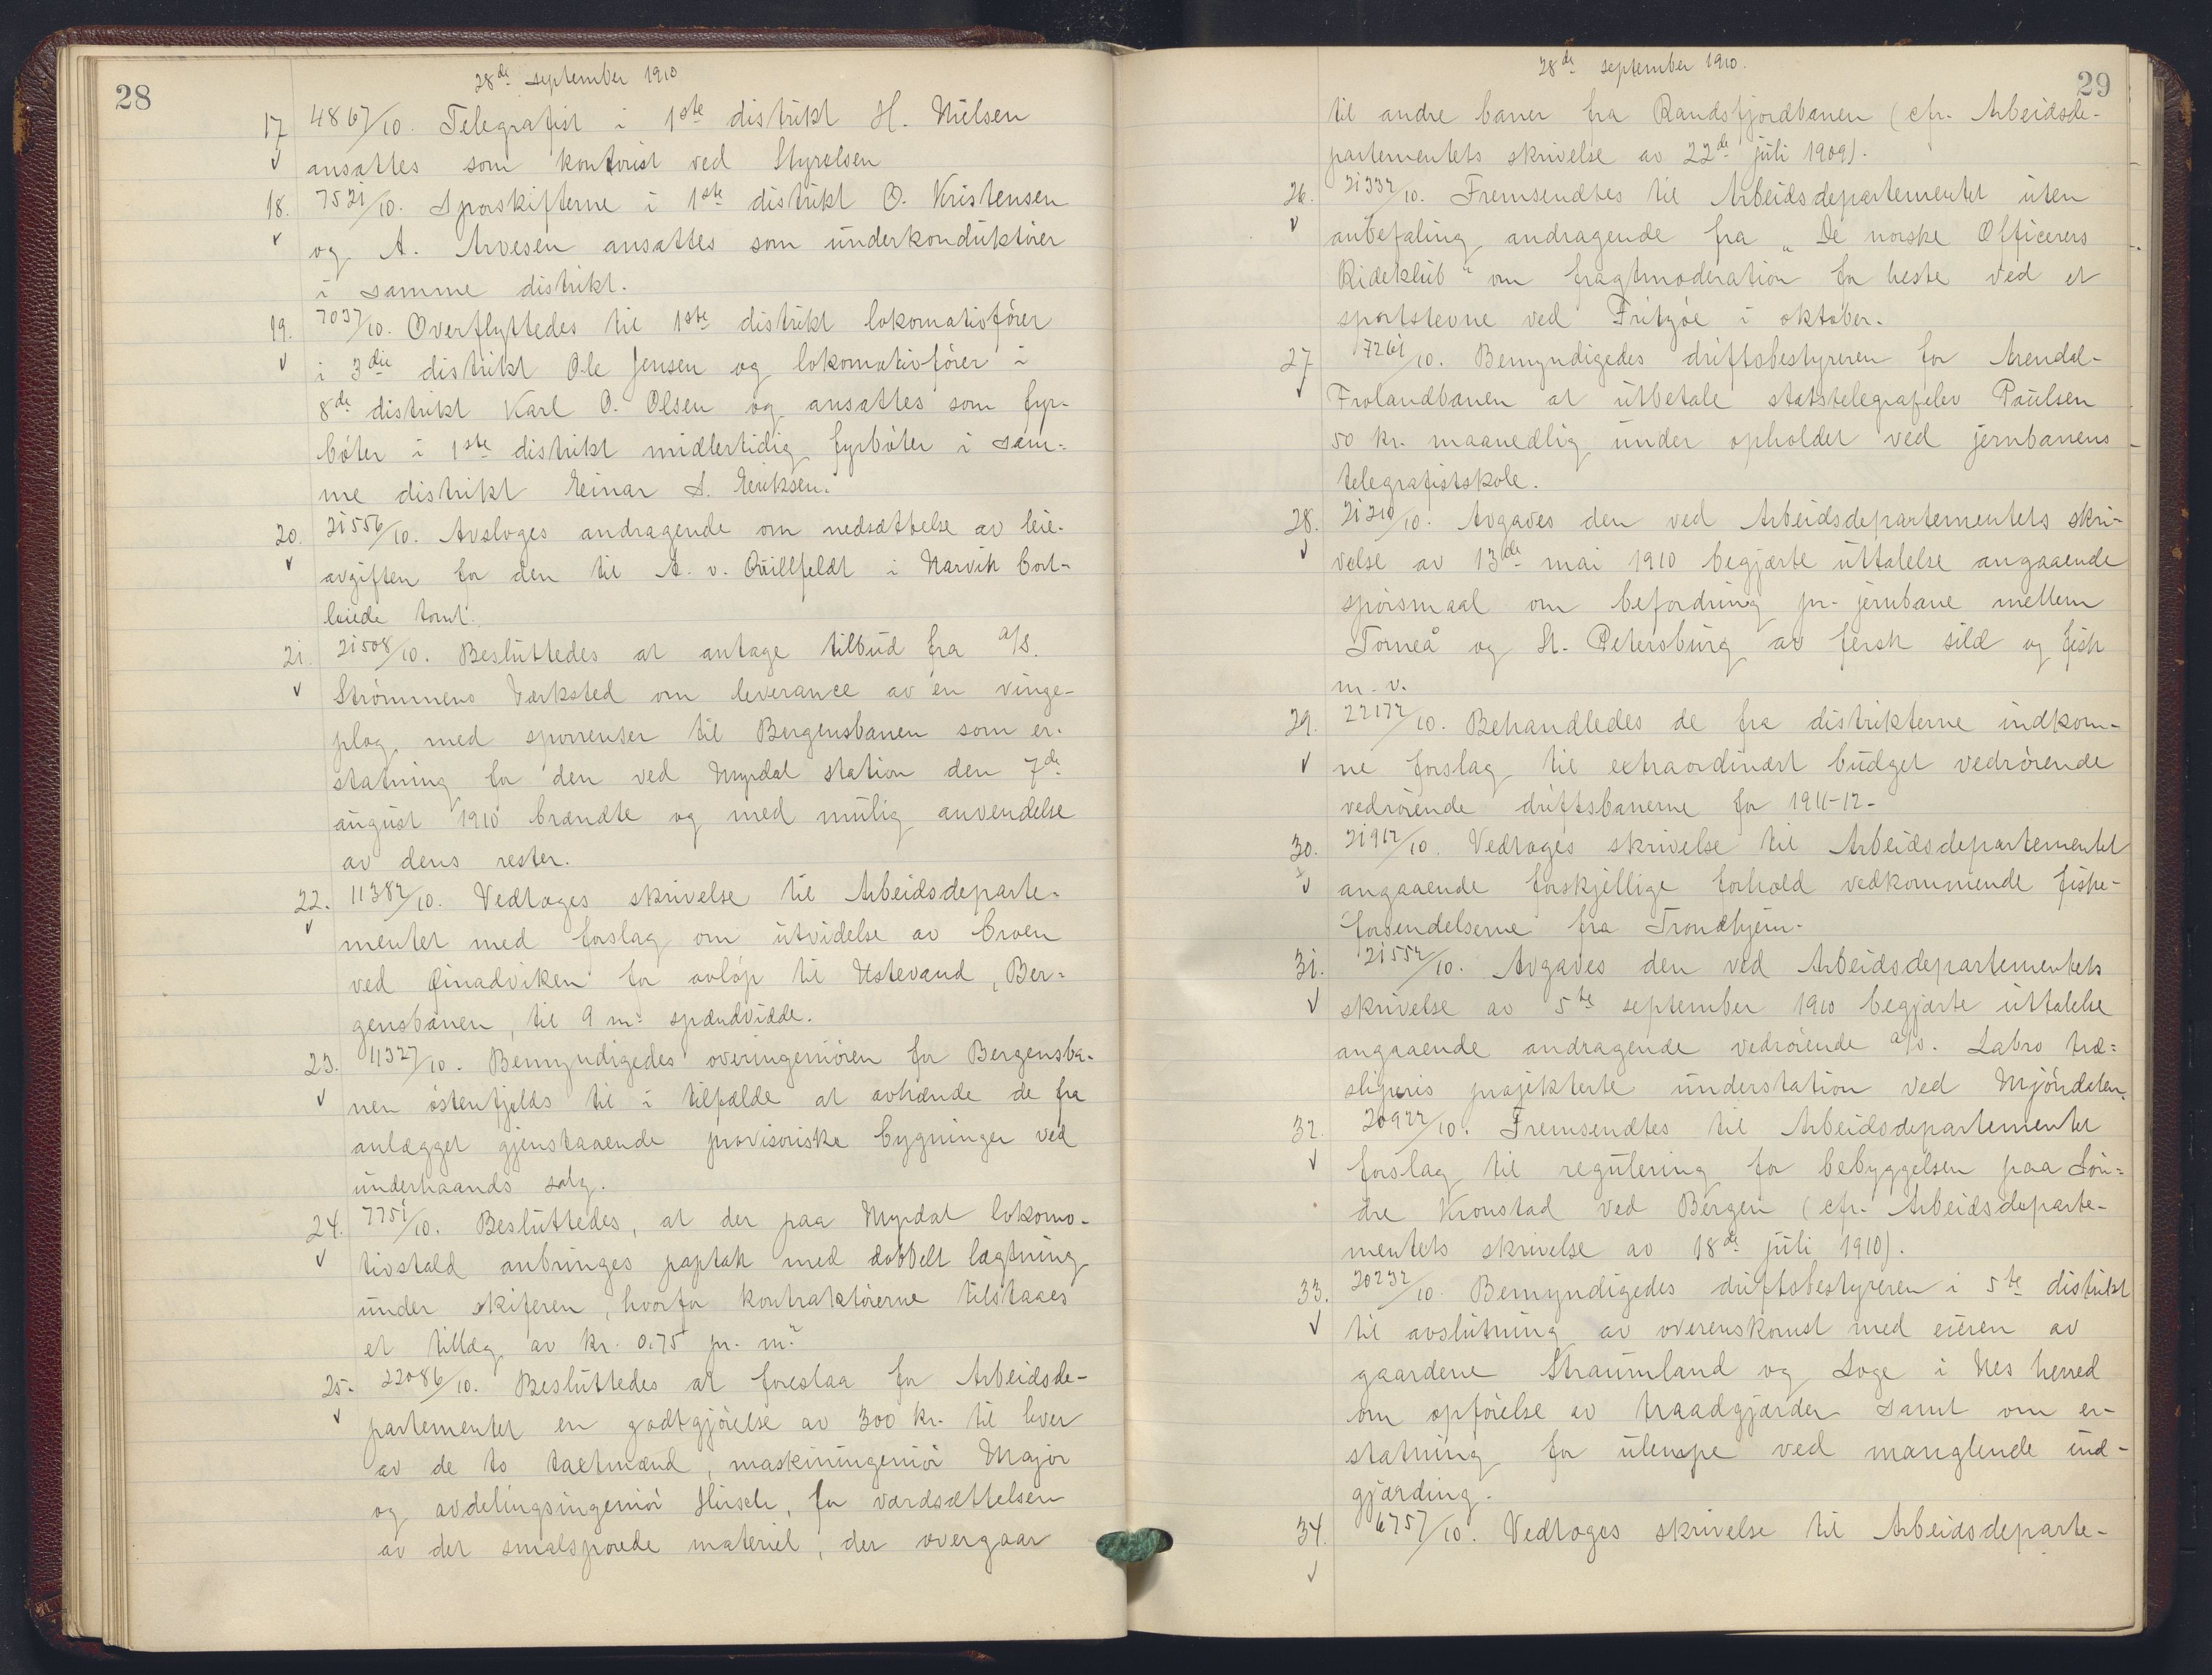 28
28de september 1910
17 4867/10. Telegrafist i 1ste distrikt H. Nielsen
ansattes som kontorist ved Styrelsen
18. 7521/10. Sporskifterne i 1ste distrikt O. Kristensen
og A. Arvesen ansattes som underkonduktører
i samme distrikt.
19. 7037/10. Overflyttedes til 1ste distrikt lokomotivfører
i 3die distrikt Ole Jensen og lokomotivfører i
8de distrikt Karl O. Olsen og ansattes som fyr-
bøter i 1ste distrikt midlertidig fyrbøter i sam-
me distrikt Einar A. Eriksen.
20. 21556/10. Avsloges andragende om nedsættelse av leie-
avgiften for den til A. v. Quillfeldt i Narvik bort-
leiede tomt.
21. 21508/10. Besluttedes at antage tilbud fra a/s.
Strømmens Værksted om leverance av en vinge-
plog med sporrenser til Bergensbanen som er-
statning for den ved Myrdal station den 7de
august 1910 brændte og med mulig anvendelse
av dens rester.
22. 11382/10. Vedtoges skrivelse til Arbeidsdeparte-
mentet med forslag om utvidelse av broen
ved for avløp til Ustevand, Ber-
gensbanen, til 9 m. spændvidde.
23. 11327/10. Bemyndigedes overingeniøren for Bergensba-
nen østenfjelds til i tilfælde at avhænde de fra
anlægget gjenstaaende provisoriske bygninger ved
underhaands salg.
24. 7751/10. Besluttedes, at der paa Myrdal lokomo-
tivstald anbringes paptak med dobbelt lægtning
under skiferen, hvorfor kontraktørerne tilstaaes
et tillæg av kr. 0.75 pr. m²
25. 22086/10. Besluttedes at foreslaa for Arbeidsde-
partementet en godtgjørelse av 300 kr. til hver
av de to taktmænd, maskiningeniør Major
og avdelingsingeniør Hirsch, for værdsættelsen
av det smalsporede materiel, der overgaar
29
28de september 1910.
til andre baner fra Randsfjordbanen (cfr. Arbeidsde-
partementets skrivelse av 22de juli 1909).
26. 21332/10. Fremsendtes til Arbeidsdepartementet uten
anbefaling andragende fra "De norske Officerers
Rideklub" om fragtmoderation for heste ved et
sportstevne ved Fritzøe i oktober.
27 7261/10. Bemyndigedes driftsbestyreren for Arendal-
Frolandbanen at utbetale statstelegrafelev Paulsen
50 kr. maanedlig under opholdet ved jernbanens
telegrafistskole.
28. 21210/10. Avgaves den ved Arbeidsdepartementets skri-
velse av 13de mai 1910 begjærte uttalelse angaaende
spørsmaal om befordring pr. jernbane mellem
Torneå og St. Petersburg av fersk sild og fisk
m. v.
29. 22172/10. Behandledes de fra distrikterne indkom-
ne forslag til extraordinært budget vedrørende
vedrørende driftsbanerne for 1911-12.
30. 21912/10. Vedtoges skrivelse til Arbeidsdepartementet
angaaende forskjellige forhold vedkommende fiske-
forsendelserne fra Trondhjem.
31. 21552/10. Avgaves den ved Arbeidsdepartementets
skrivelse av 5te september 1910 begjærte uttalelse
angaaende andragende vedrørende a/s. Labro træ-
sliperis projekterte understation ved Mjøndalen.
32. 20922/10. Fremsendtes til Arbeidsdepartementet
forslag til regulering for bebyggelsen paa Søn-
dre Kronstad ved Bergen (cfr. Arbeidsdeparte-
mentets skrivelse av 18de juli 1910).
33. 20232/10. Bemyndigedes driftsbestyreren i 5te distrikt
til avslutning av overenskomst med eieren av
gaardene Straumland og Loge i Nes herred
om opførelse av traadgjærder samt om er-
statning for ulempe ved manglende ind-
gjærding.
34. 6757/10. Vedtoges skrivelse til Arbeidsdeparte-